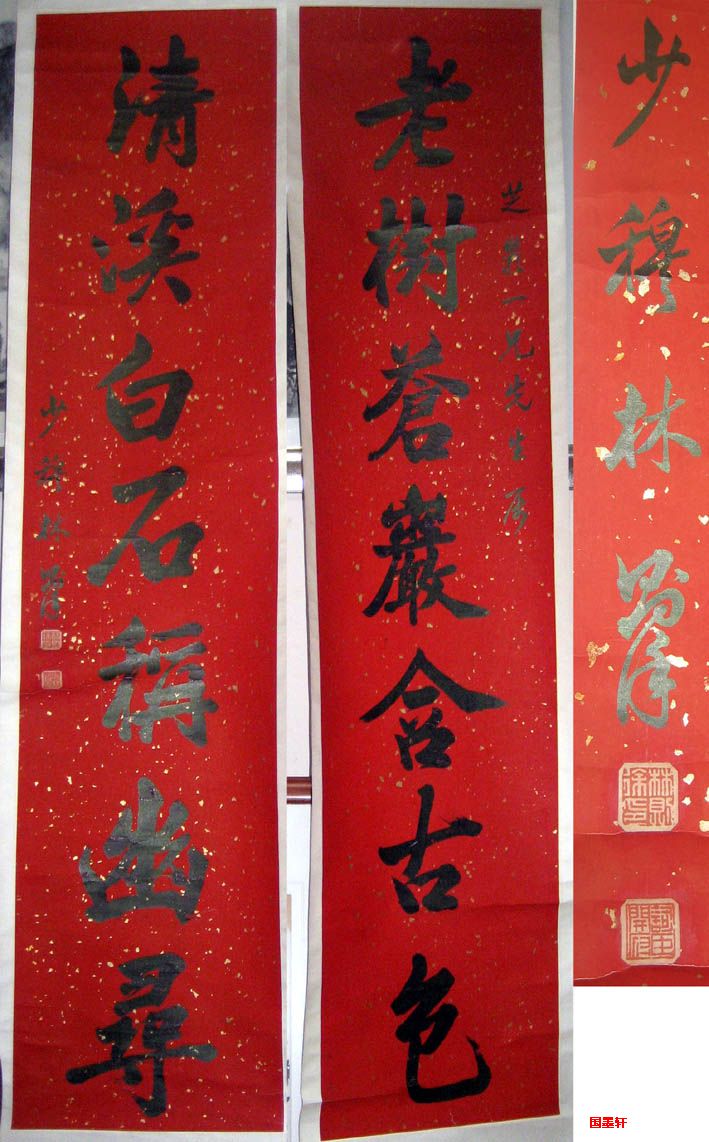 老樹蒼巖含古色
芝〇一兄先生属
清溪白石稱幽尋
少穆林則徐
少穆林則徐
林則徐印
国墨轩